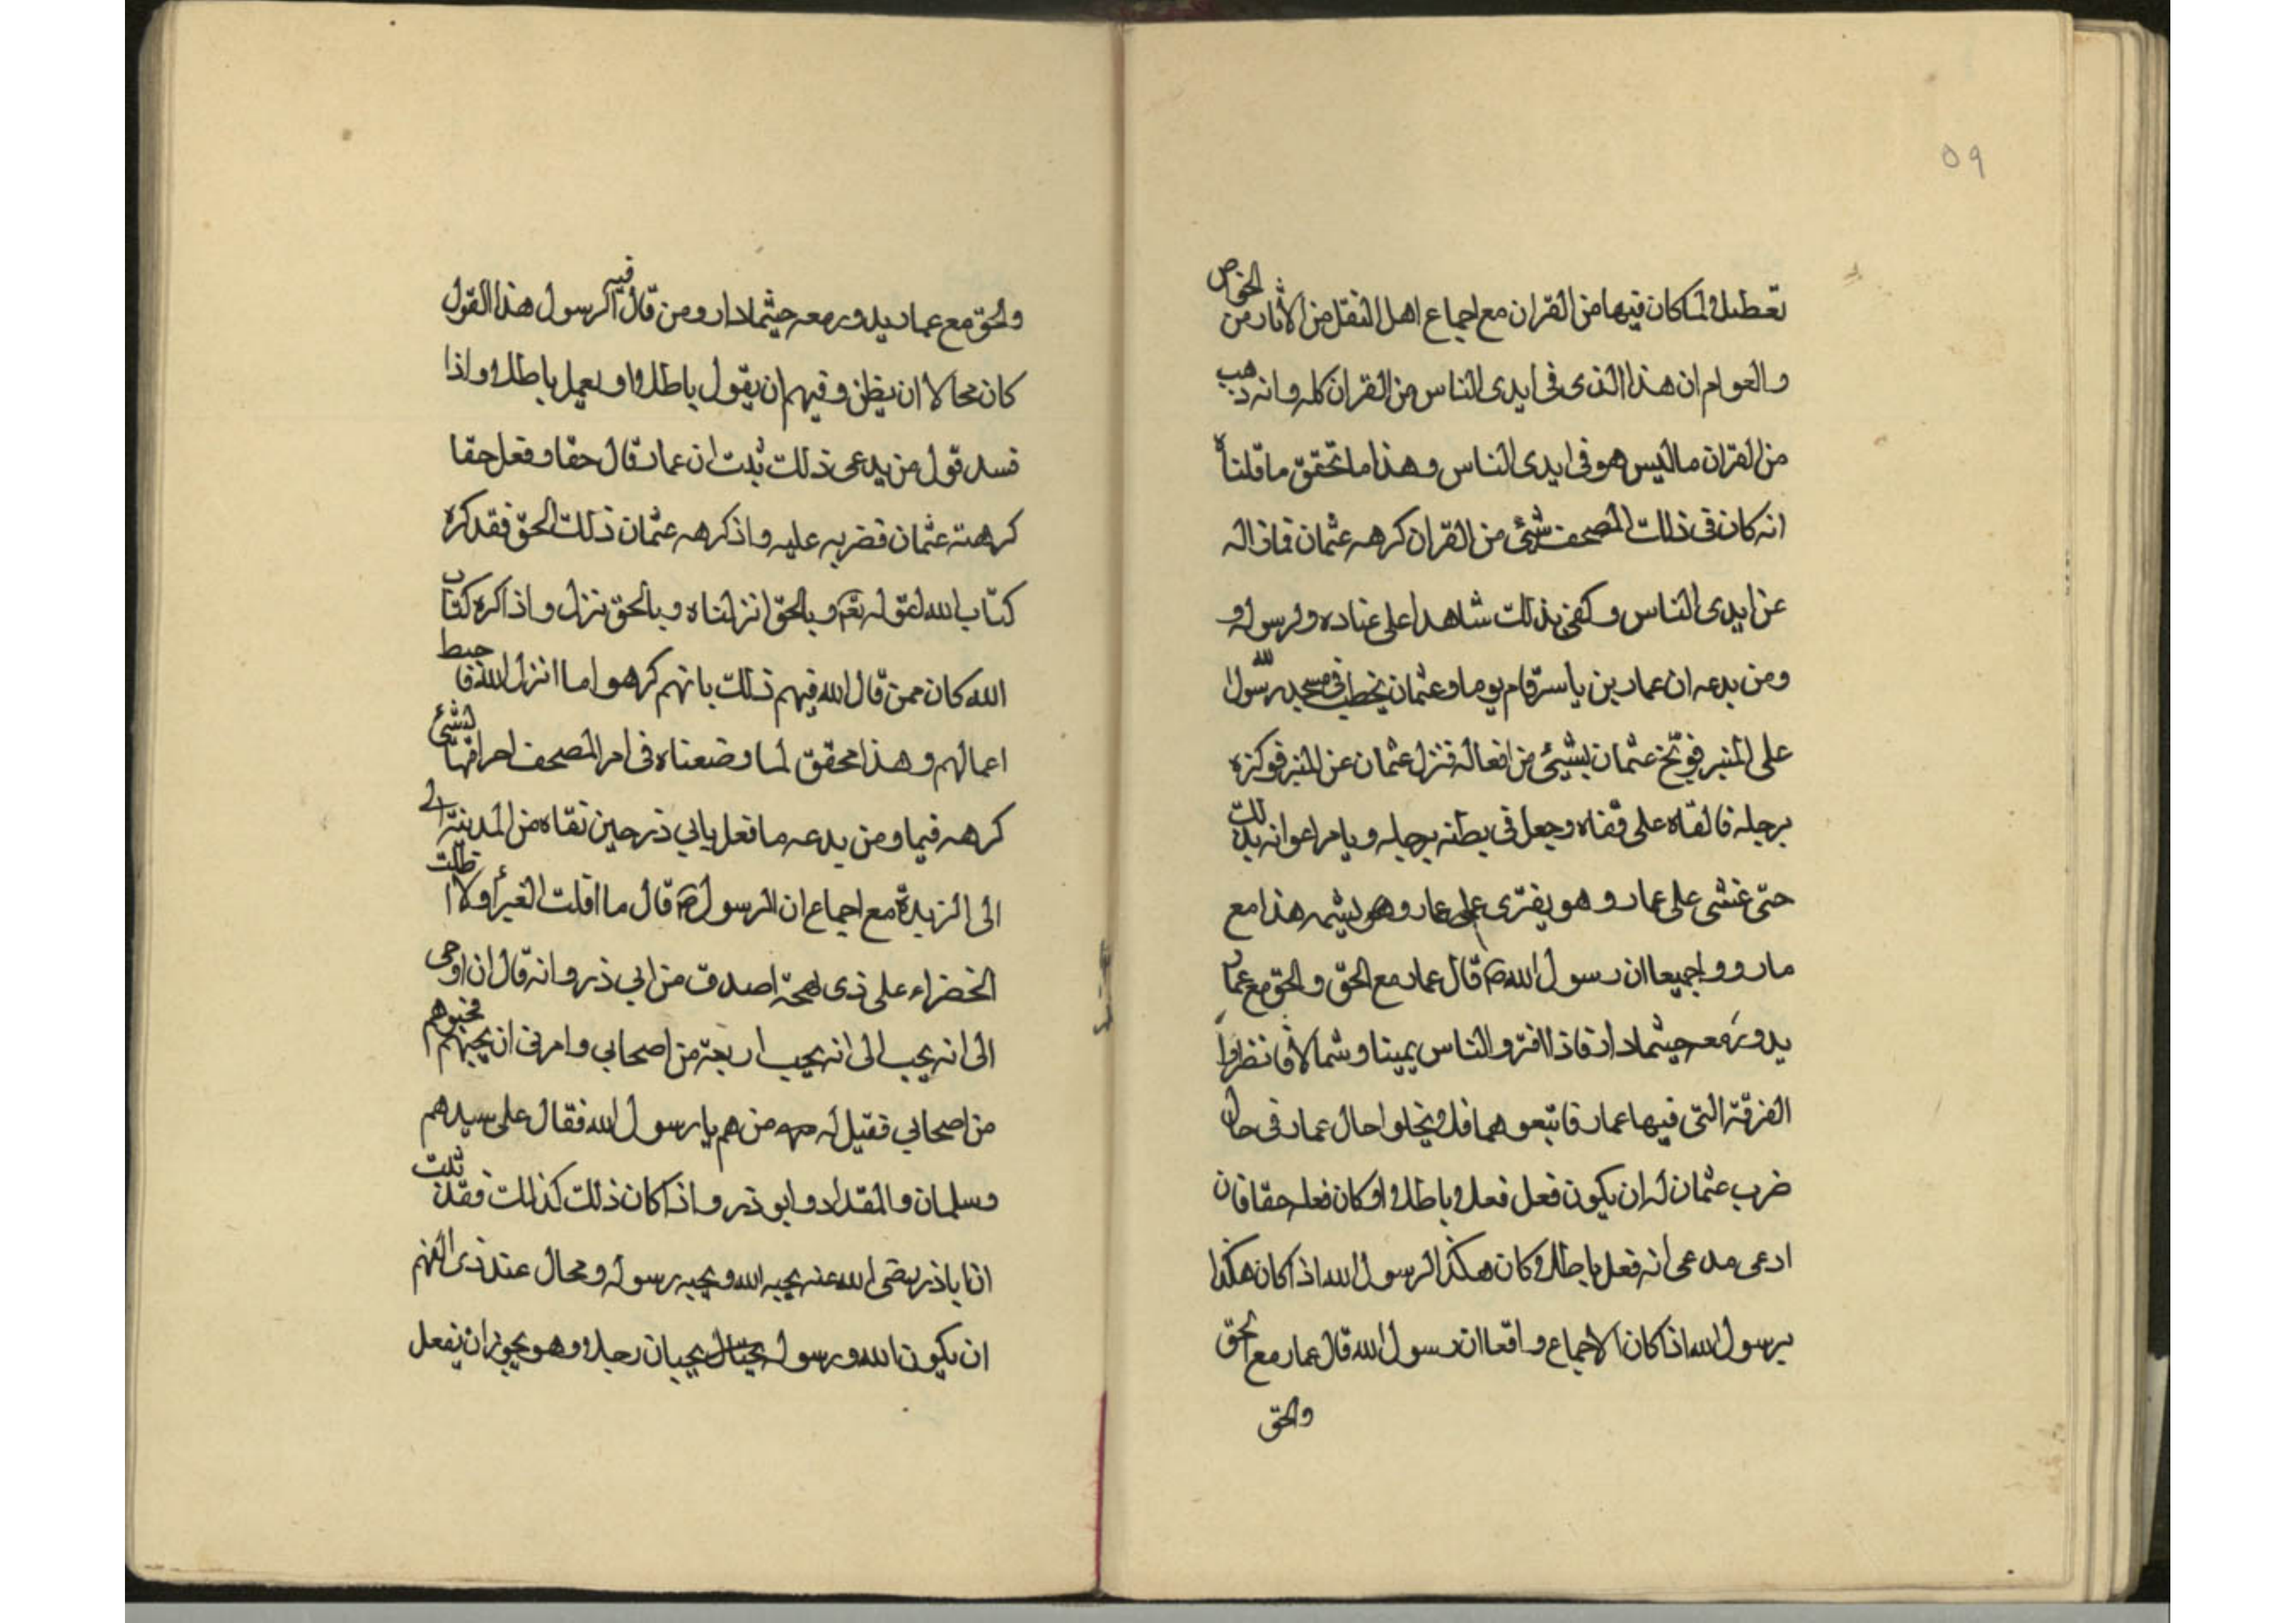 ٥٩
تعطيلا لما كان فيها من القران مع اجماع اهل النقل من الاثار من الخواص
والعوام ان هذا الذى فى ايدى الناس من القران كله وانه ذهب
من القران ما ليس هو فى ايدى الناس وهذا ما تحقق ما قلناه
انه كان فى ذلك المصحف شئ من القران كرهه عثمان فازاله
عن ايدى الناس وكفى بذلك شاهدا على عناده ولرسوله و
ومن بدعه ان عمار بن ياسر قام يوما وعثمان يخطب فى مسجد رسول الله
على المنبر فوبخ عثمان بشيئ من افعاله فنزل عثمان عن المنبر فوكزه
برجله فالقاه على قفاه وجعل فى بطنه برجله ويامر اعوانه بذلك
حتى غشى على عمار وهو يفترى على عمار وهو يشتمه هذا مع
ما رووا جميعا ان رسول الله ص قال عمار مع الحق والحق مع عمار
يدور معه حيثما دار فاذا افترق الناس يمينا وشمالا فانظروا
الفرقة التى فيها عمار فاتبعوهما فلا يخلوا حال عمار فى حال
ضرب عثمان له ان يكون فعل فعلا باطلا او كان فعله حقا فان
ادعى مدعى انه فعل باطلا وكان هكذا الرسول الله اذا كان هكذا
برسول الله اذا كان الاجماع واقعا ان رسول الله قال عمار مع الحق
والحق
والحق مع عمار يدور معه حيثما دار ومن قال فيه الرسول هذا القول
كان محالا ان يظن وفيهم ان يقول باطلا او يعمل باطلا واذا
فسد قول من يدعى ذلك ثبت ان عمار قال حقا وفعل حقا
كرهته عثمان فضربه عليه واذ كرهه عثمان ذلك الحق فقد كره
كتاب الله لقوله تعم وبالحق انزلناه وبالحق نزل واذا كره كتاب
الله كان ممن قال الله فيهم ذلك بانهم كرهوا ما انزل الله فاحبط
اعمالهم وهذا محقق لما وضعناه فى امر المصحف احراقها لشئ
كرهه فيما ومن بدعه ما فعل بابي ذر حين نفاه من المدينة الى
الى الزبدة مع اجماع ان الرسول ص قال ما اقلت الغبرأ ولا اظلت
الخضراء على ذى لهجة اصدق من ابي ذر وانه قال ان اوحى
الى انه يحب الى انه يحب اربعة من اصحابي وامرنى ان يحبهم
من اصحابي فقيل له من هم يا رسول الله فقال على سيدهم
وسلمان والمقداد وابو ذر واذا كان ذلك كذلك فقد ثبت
ان اباذر رضى الله عنه يحبه الله ويحبه رسوله ومحال عند ذى الفهم
ان يكون الله ورسوله يحبان رجلا وهو يجوز ان يفعل